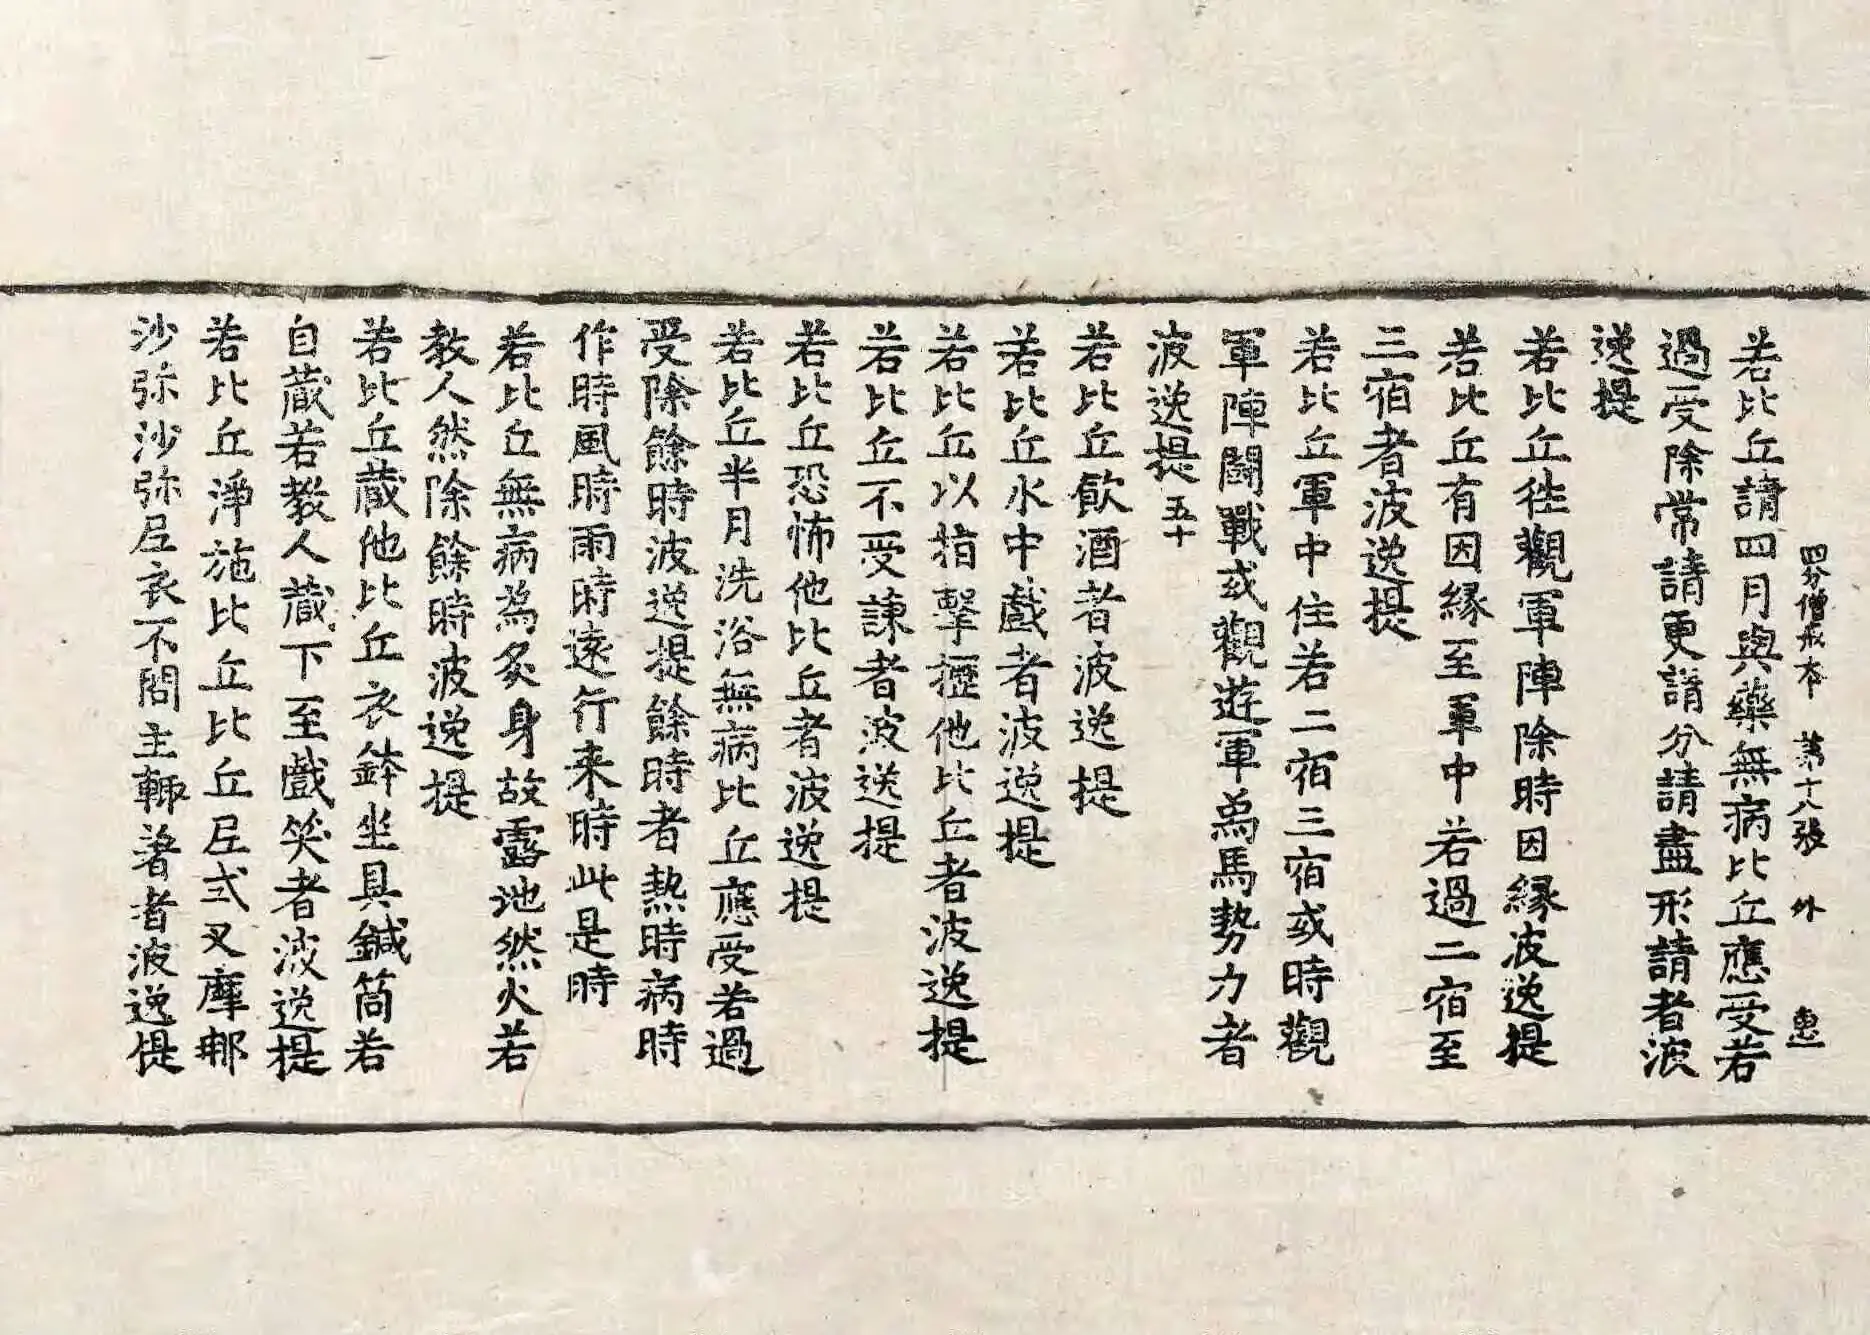 四分僧戒本 苐十八張 外
若比丘請四月與藥無病比丘應受若
過受除常請更請分請盡形請者波
逸提
若比丘往觀軍陣除時因縁波逸提
若比丘有因縁至軍中若過二宿至
三宿者波逸提
若比丘軍中住若二宿三宿或時觀
軍陣鬪戰或觀遊軍象馬勢力者
波逸提 五十
若比丘飲酒者波逸提
若比丘水中戲者波逸提
若比丘以指擊攊他比丘者波逸提
若比丘不受諫者波逸提
若比丘恐怖他比丘者波逸提
若比丘半月洗浴無病比丘應受若過
受除餘時波逸提餘時者熱時病時
作時風時雨時遠行来時此是時
若比丘無病為炙身故露地然火若
教人然除餘時波逸提
若比丘蔵他比丘衣鉢坐具鍼筒若
自蔵若教人蔵下至戲笑者波逸提
若比丘淨施比丘比丘尼式叉摩那
沙弥沙弥尼衣不問主輙著者波逸提